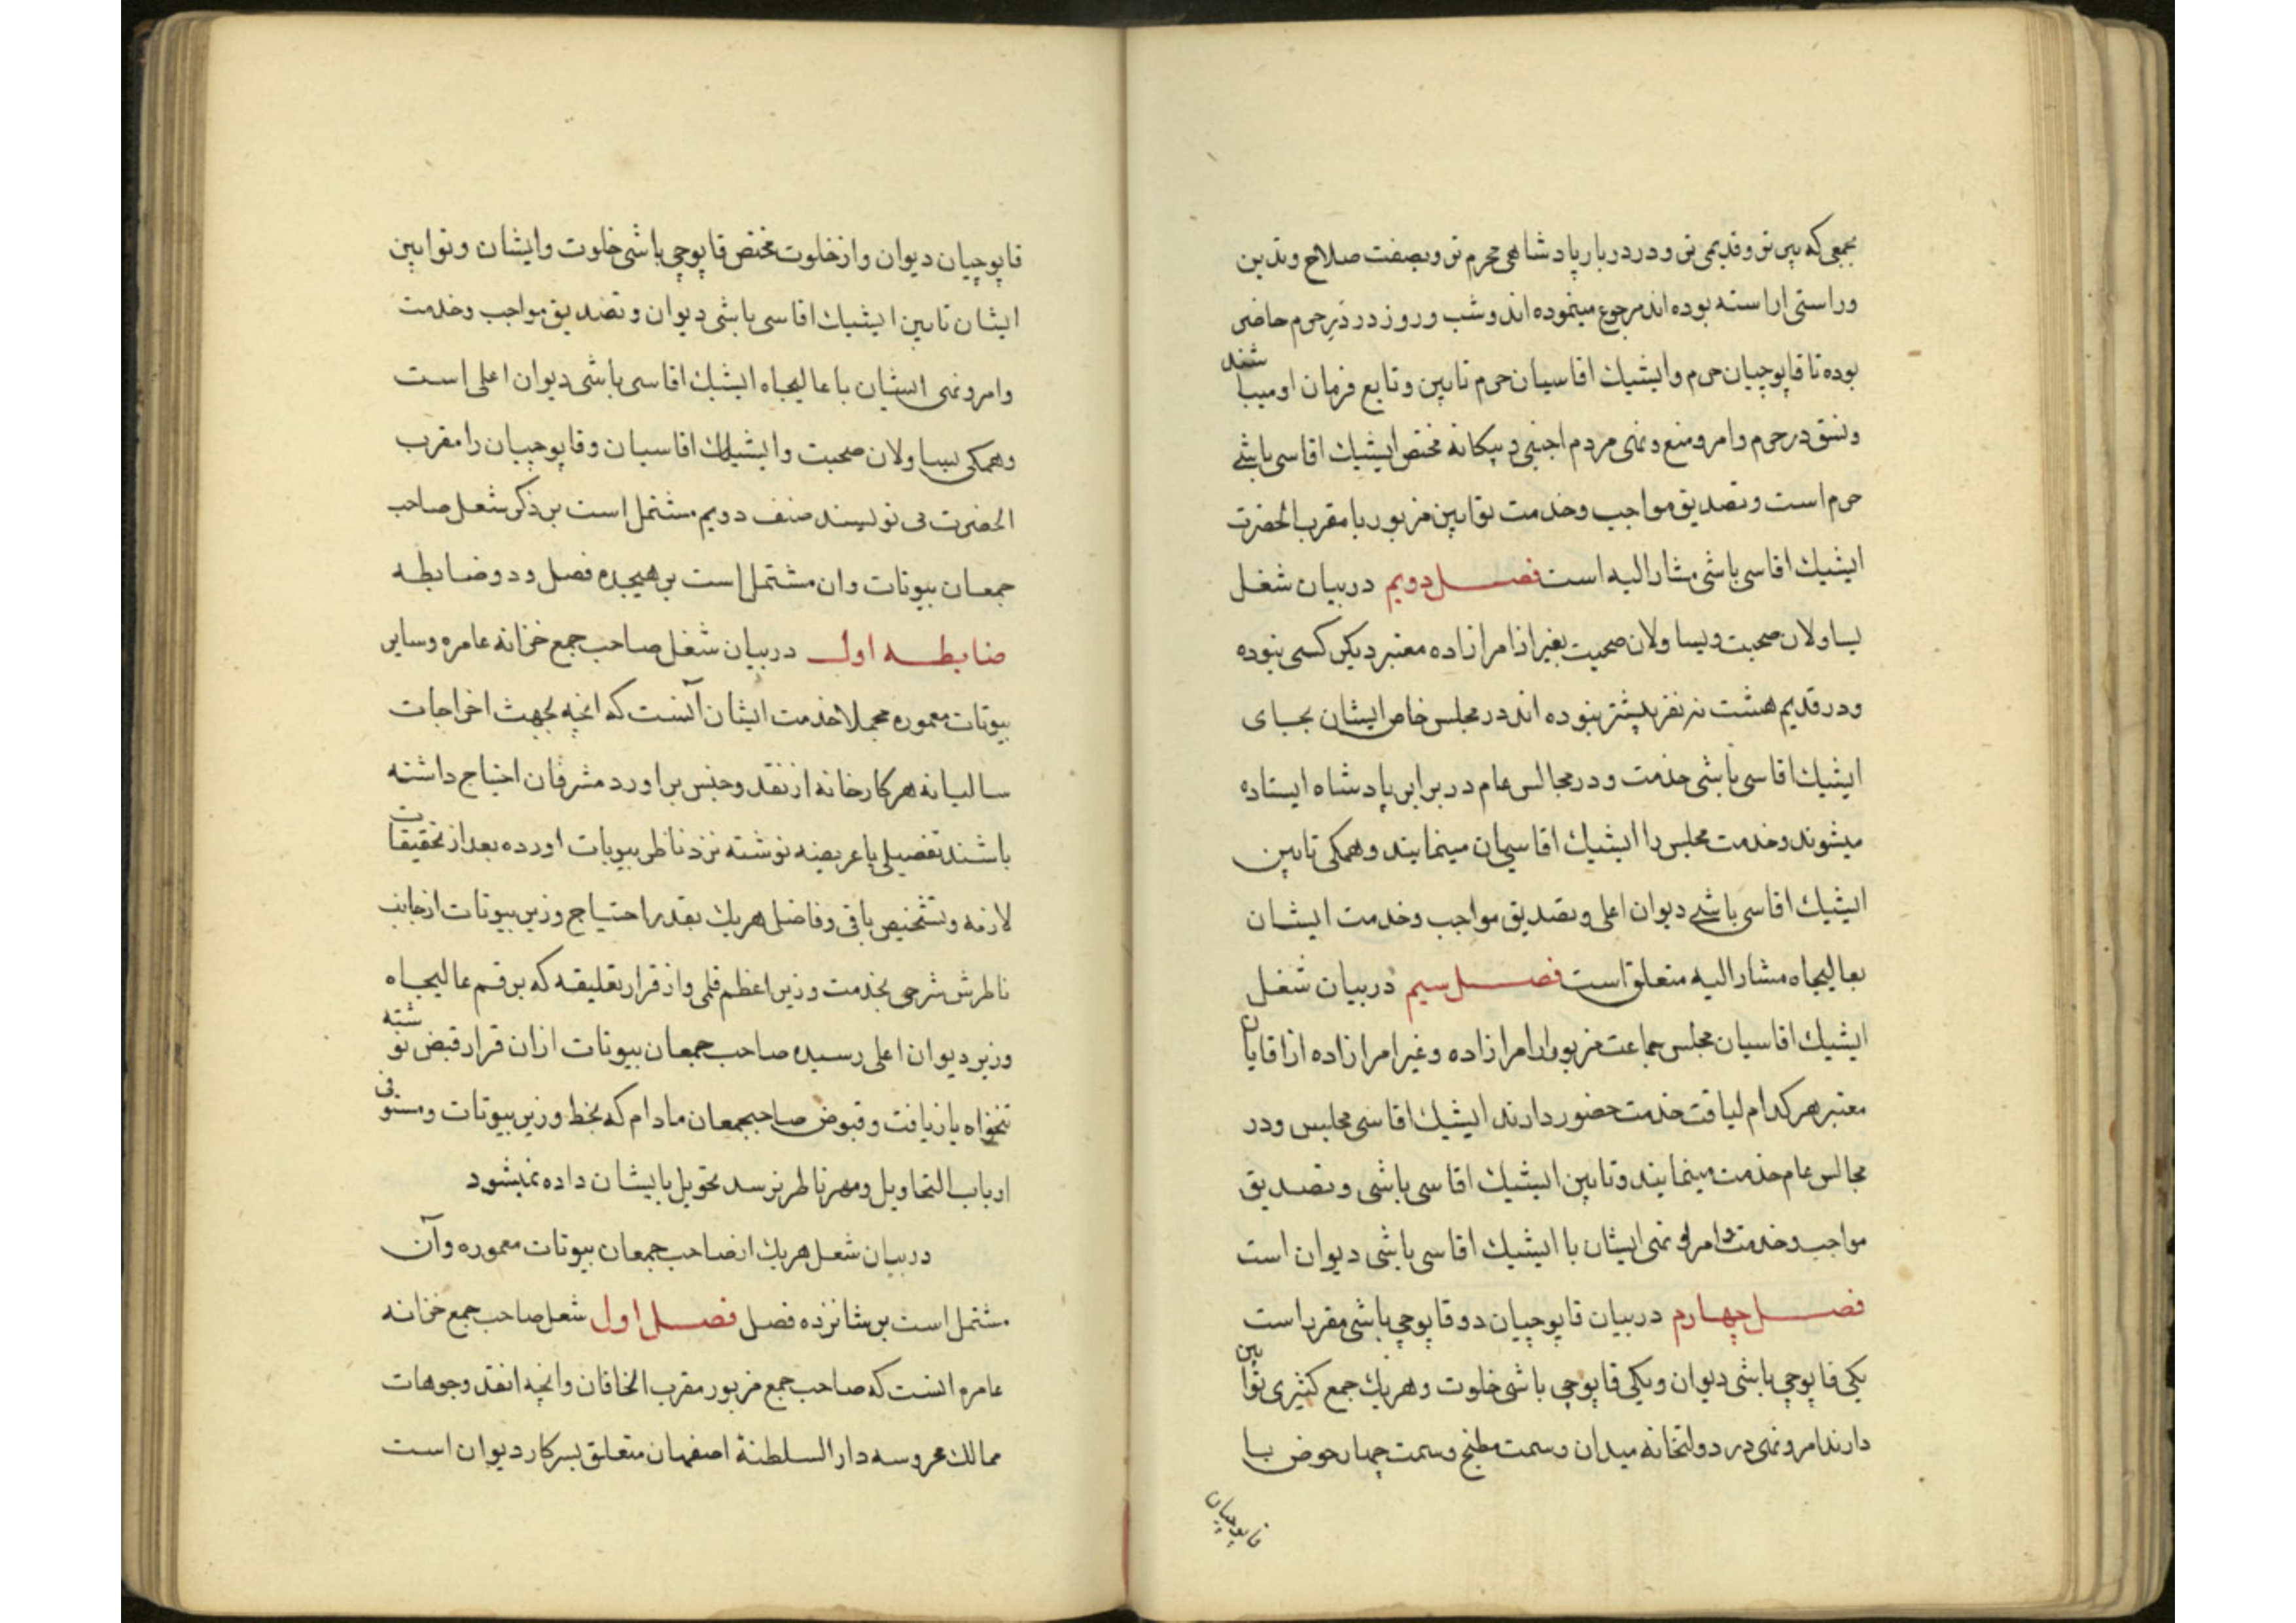 بجمعی که پیر تر و قدیمی تر و در دربار پادشاهی محرم تر و بصفت صلاح و تدین
و راستی اراسته بوده اند مرجوع مینموده اند و شب و روز در در حرم حاضر
بوده تا قاپوچیان حرم و ایشیك اقاسیان حرم تابین و تابع فرمان او میباشند
و نسق در حرم و امر و منع و نهی مردم اجنبی و بیکانه مختص ایشیك اقاسی باشی
حرم است و تصدیق مواجب و خدمت توابین مزبور با مقرب الحضرت
ایشیك اقاسی باشی مشار الیه است فصل دویم در بیان شغل
یساولان صحبت و یساولان صحبت بغیر از امرا زاده معتبر دیکر کسی نبوده
و در قدیم هشت نه نفر بیشتر نبوده اند در مجلس خاص ایشان بجای
ایشیك اقاسی باشی خدمت و در مجالس عام در برابر پادشاه ایستاده
میشوند و خدمت مجلس را ایشیك اقاسیان مینمایند و همکی تابین
ایشیك اقاسی باشی دیوان اعلی و تصدیق مواجب و خدمت ایشان
بعالیجاه مشار الیه متعلق است فصل سیم در بیان شغل
ایشیك اقاسیان مجلس جماعت مزبور از امرا زاده و غیر امرا زاده از اقایان
معتبر هر کدام لیاقت خدمت حضور دارند ایشیك اقاسی مجلس و در
مجالس عام خدمت مینمایند و تابین ایشیك اقاسی باشی و تصدیق
مواجب و خدمت و امر و نهی ایشان با ایشیك اقاسی باشی دیوان است
فصل چهارم در بیان قاپوچیان دو قاپوچی باشی مقرر است
یکی قاپوچی باشی دیوان و یکی قاپوچی باشی خلوت و هریك جمع کثیری توابین
دارند امر و نهی در دولتخانه میدان و سمت مطبخ و سمت چهار حوض با
قاپوچیان
قاپوچیان دیوان و از خلوت مختص قاپوچی باشی خلوت و ایشان و توابین
ایشان تابین ایشیك اقاسی باشی دیوان و تصدیق مواجب و خدمت
و امر و نهی ایشان با عالیجاه ایشیك اقاسی باشی دیوان اعلی است
و همکی یساولان صحبت و ایشیك اقاسیان و قاپوچیان را مقرب
الحضرت می نویسند صنف دویم مشتمل است بر ذکر شغل صاحب
جمعان بیوتات و ان مشتمل است بر هیجده فصل و دو ضابطه
ضابطه اول در بیان شغل صاحب جمع خزانه عامره و سایر
بیوتات معموره مجملا خدمت ایشان آنست که انچه بجهت اخراجات
سالیانه هر کارخانه از نقد و جنس براورد مشرفان احتیاج داشته
باشند تفصیلی یا عریضه نوشته نزد ناظر بیوتات اورده بعد از تحقیقات
لازمه و تشخیص باقی و فاضل هریك بقدر احتیاج وزیر بیوتات از جانب
ناظر شرحی بخدمت وزیر اعظم قلمی و از قرار تعلیقه که برقم عالیجاه
وزیر دیوان اعلی رسیده صاحب جمعان بیوتات ازان قرار قبض نوشته
تنخواه بازیافت و قبوض صاحبجمعان مادام که بخط وزیر بیوتات و مستوفی
ارباب التحاویل و مهر ناظر نرسد تحویل بایشان داده نمیشود
در بیان شغل هریك از صاحب جمعان بیوتات معموره و آن
مشتمل است بر شانزده فصل فصل اول شغل صاحب جمع خزانه
عامره انست که صاحب جمع مزبور مقرب الخاقان و انچه از نقد وجوهات
ممالك محروسه دار السلطنة اصفهان متعلق بسرکار دیوان است